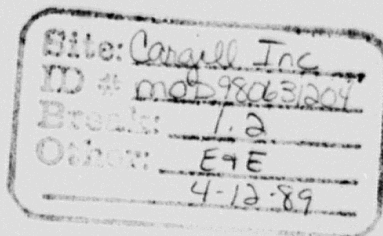 Site: Cargill Inc
ID # MOD980631204
Break: 1.2
Other: E+E
4-12-89